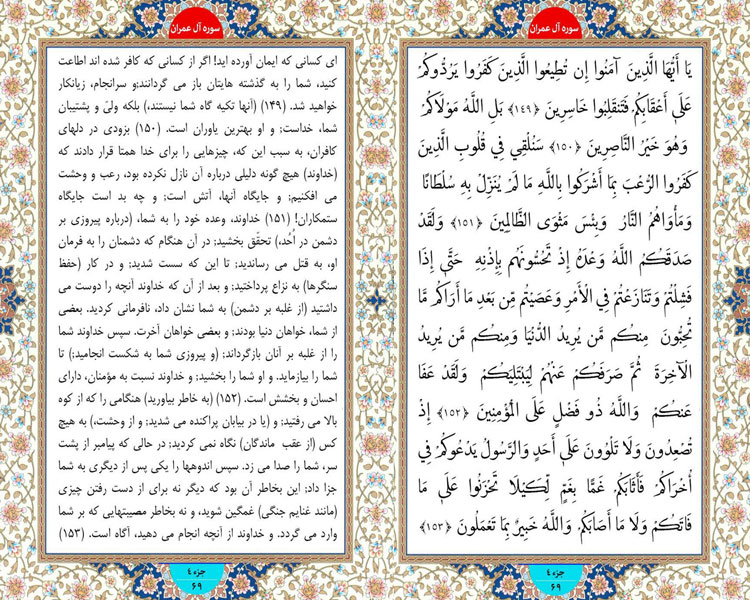 سوره آل عمران
یَا أَیُّهَا الَّذِینَ آمَنُوا إِن تُطِیعُوا الَّذِینَ کَفَرُوا یَرُدُّوکُمْ
عَلَىٰ أَعْقَابِکُمْ فَتَنقَلِبُوا خَاسِرِینَ ﴿۱۴۹﴾ بَلِ اللَّهُ مَوْلَاکُمْ
وَهُوَ خَیْرُ النَّاصِرِینَ ﴿۱۵۰﴾ سَنُلْقِی فِی قُلُوبِ الَّذِینَ
کَفَرُوا الرُّعْبَ بِمَا أَشْرَکُوا بِاللَّهِ مَا لَمْ یُنَزِّلْ بِهِ سُلْطَانًا
وَمَأْوَاهُمُ النَّارُ وَبِئْسَ مَثْوَى الظَّالِمِینَ ﴿۱۵۱﴾ وَلَقَدْ
صَدَقَکُمُ اللَّهُ وَعْدَهُ إِذْ تَحُسُّونَهُم بِإِذْنِهِ حَتَّىٰ إِذَا
فَشِلْتُمْ وَتَنَازَعْتُمْ فِی الْأَمْرِ وَعَصَیْتُم مِّن بَعْدِ مَا أَرَاکُم مَّا
تُحِبُّونَ مِنکُم مَّن یُرِیدُ الدُّنْیَا وَمِنکُم مَّن یُرِیدُ
الْآخِرَةَ ثُمَّ صَرَفَکُمْ عَنْهُمْ لِیَبْتَلِیَکُمْ وَلَقَدْ عَفَا
عَنکُمْ وَاللَّهُ ذُو فَضْلٍ عَلَى الْمُؤْمِنِینَ ﴿۱۵۲﴾ إِذْ
تُصْعِدُونَ وَلَا تَلْوُونَ عَلَىٰ أَحَدٍ وَالرَّسُولُ یَدْعُوکُمْ فِی
أُخْرَاکُمْ فَأَثَابَکُمْ غَمًّا بِغَمٍّ لِّکَیْلَا تَحْزَنُوا عَلَىٰ مَا
فَاتَکُمْ وَلَا مَا أَصَابَکُمْ وَاللَّهُ خَبِیرٌ بِمَا تَعْمَلُونَ ﴿۱۵۳﴾
جزء ٤
۶۹
سوره آل عمران
ای کسانی که ایمان آورده اید! اگر از کسانی که کافر شده اند اطاعت
کنید، شما را به گذشته هایتان باز می گردانند؛و سرانجام، زیانکار
خواهید شد. (۱۴۹) (آنها تکیه گاه شما نیستند،) بلکه ولیّ و پشتیبان
شما، خداست؛ و او بهترین یاوران است. (۱۵۰) بزودی در دلهای
کافران، به سبب این که، چیزهایی را برای خدا همتا قرار دادند که
(خداوند) هیچ گونه دلیلی درباره آن نازل نکرده بود، رعب و وحشت
می افکنیم؛ و جایگاه آنها، آتش است؛ و چه بد است جایگاه
ستمکاران! (۱۵۱) خداوند، وعده خود را به شما، (درباره پیروزی بر
دشمن در اُحد،) تحقّق بخشید؛ در آن هنگام که دشمنان را به فرمان
او، به قتل می رساندید؛ تا این که سست شدید؛ و در کار (حفظ
سنگرها) به نزاع پرداختید؛ و بعد از آن که خداوند آنچه را دوست می
داشتید (از غلبه بر دشمن) به شما نشان داد، نافرمانی کردید. بعضی
از شما، خواهان دنیا بودند؛ و بعضی خواهان آخرت. سپس خداوند شما
را از غلبه بر آنان بازگرداند؛ (و پیروزی شما به شکست انجامید؛) تا
شما را بیازماید. و او شما را بخشید؛ و خداوند نسبت به مؤمنان، دارای
احسان و بخشش است. (۱۵۲) (به خاطر بیاورید) هنگامی را که از کوه
بالا می رفتید؛ و (یا در بیابان پراکنده می شدید؛ و از وحشت،) به هیچ
کس (از عقب ماندگان) نگاه نمی کردید؛ در حالی که پیامبر از پشت
سر، شما را صدا می زد. سپس اندوهها را یکی پس از دیگری به شما
جزا داد؛ این بخاطر آن بود که دیگر نه برای از دست رفتن چیزی
(مانند غنایم جنگی) غمگین شوید، و نه بخاطر مصیبتهایی که بر شما
وارد می گردد. و خداوند از آنچه انجام می دهید، آگاه است. (۱۵۳)
جزء ٤
۶۹